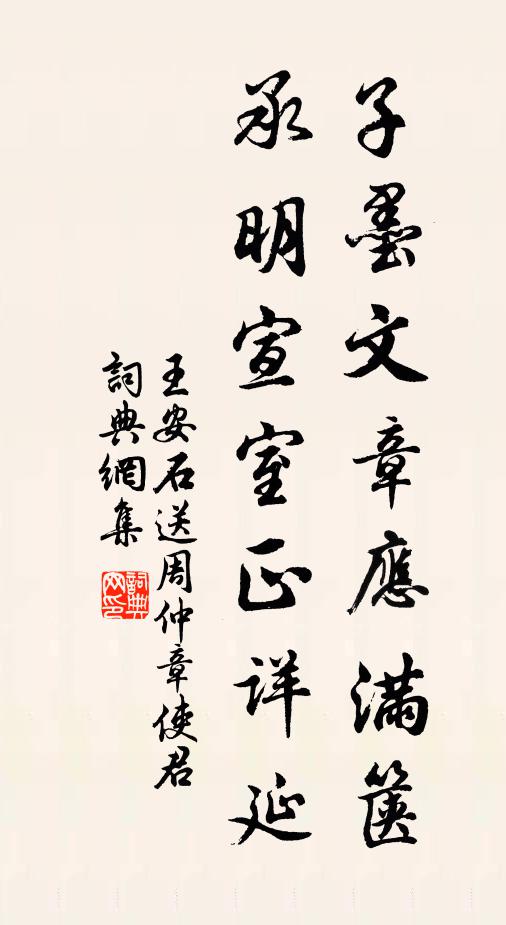 子墨文章應滿篋
承明宣室正詳延
王安石送周仲章使君
詞典網集
詞典网印